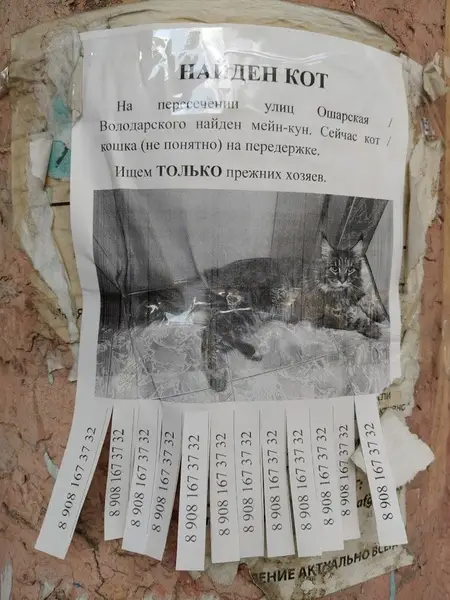 НАЙДЕН КОТ
На пересечении улиц Ошарская /
Володарского найден мейн-кун. Сейчас кот /
кошка (не понятно) на передержке.
Ищем ТОЛЬКО прежних хозяев.
8 908 167 37 32
8 908 167 37 32
8 908 167 37 32
8 908 167 37 32
8 908 167 37 32
8 908 167 37 32
8 908 167 37 32
8 908 167 37 32
8 908 167 37 32
8 908 167 37 32
8 908 167 37 32
ЕНИЕ АКТУАЛЬНО ВСЕ